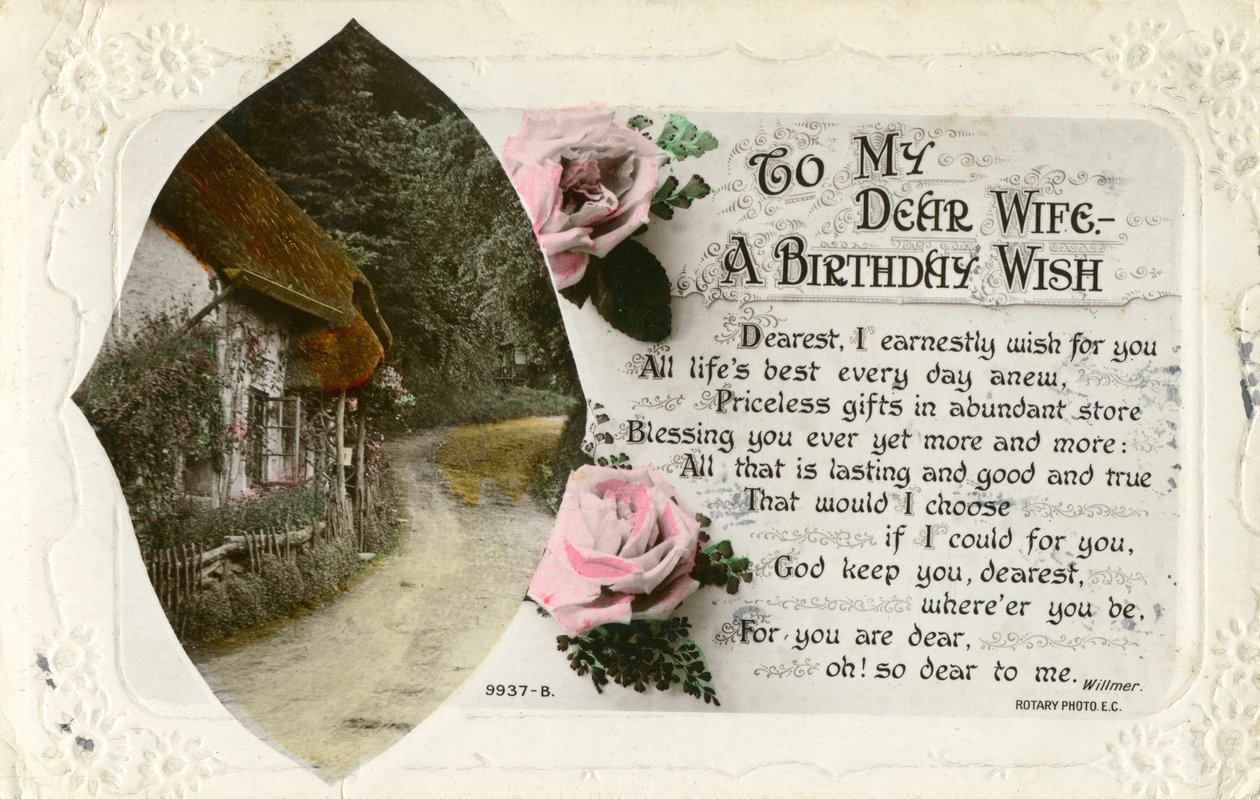 To My
Dear Wife-
A Birthday Wish
Dearest, I earnestly wish for you
All life's best every day anew,
Priceless gifts in abundant store
Blessing you ever yet more and more:
All that is lasting and good and true
That would I choose
if I could for you,
God keep you, dearest,
where'er you be,
For you are dear,
oh! so dear to me.
Willmer.
9937-B.
ROTARY PHOTO. E.C.